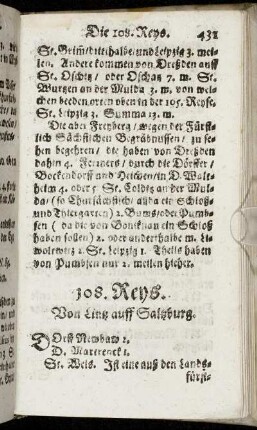 Die 108. Reys. 431
St. Grim/dritthalbe und Leipzig 3. mei-
len. Andere kommen von Dreßden auff
St. Oschitz / oder Oschatz 7. m. St.
Wurtzen an der Mulda 3. m. von wel-
chen beeden orten oben in der 105. Reyse.
St. Leipzig 3. Summa 13. m.
Die aber Freyberg / wegen der Fürst-
lich Sächsischen Begräbnussen / zu se-
hen begehren / die haben von Dreßden
dahin 4. Ferners / durch die Dörffer /
Bockendorff und Heichen / in D. Walt-
heim 4. oder 5 St. Colditz an der Mul-
da / (so Chursächsisch / allda ein Schloß
und Thiergarten) 2. Bums / oder Pumb-
sen ( da die von ein Schloß
haben sollen) 2. oder anderthalbe m.
2. St. Leipzig 1. Theils haben
von Pumbsen nur 2. meilen hieher.
108. Reys.
Von Lintz auff Saltzburg.
Dorff Newbaw 2.
D. Martrenck 1.
St. Wels. Ist eine auß den Lands-
fürst-